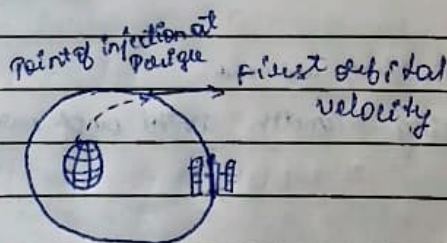 Point of injection at
Perigee
First orbital
velocity